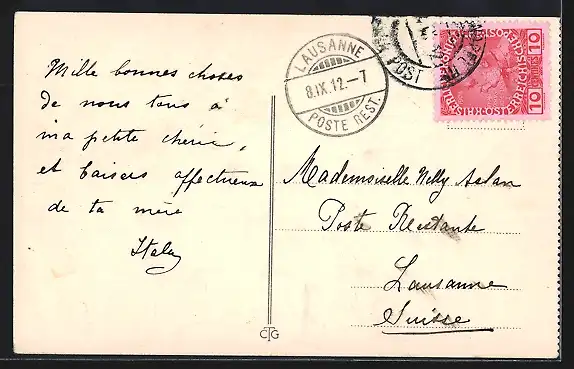 Mille bonnes choses
de nous tous à
ma petite chérie,
et baisers affectueux
de ta mère
LAUSANNE
8.IX.12.–7
POSTE REST.
POST
10
10
Mademoiselle Nelly Aslan
Poste Restante
Lausanne
Suisse
CTG